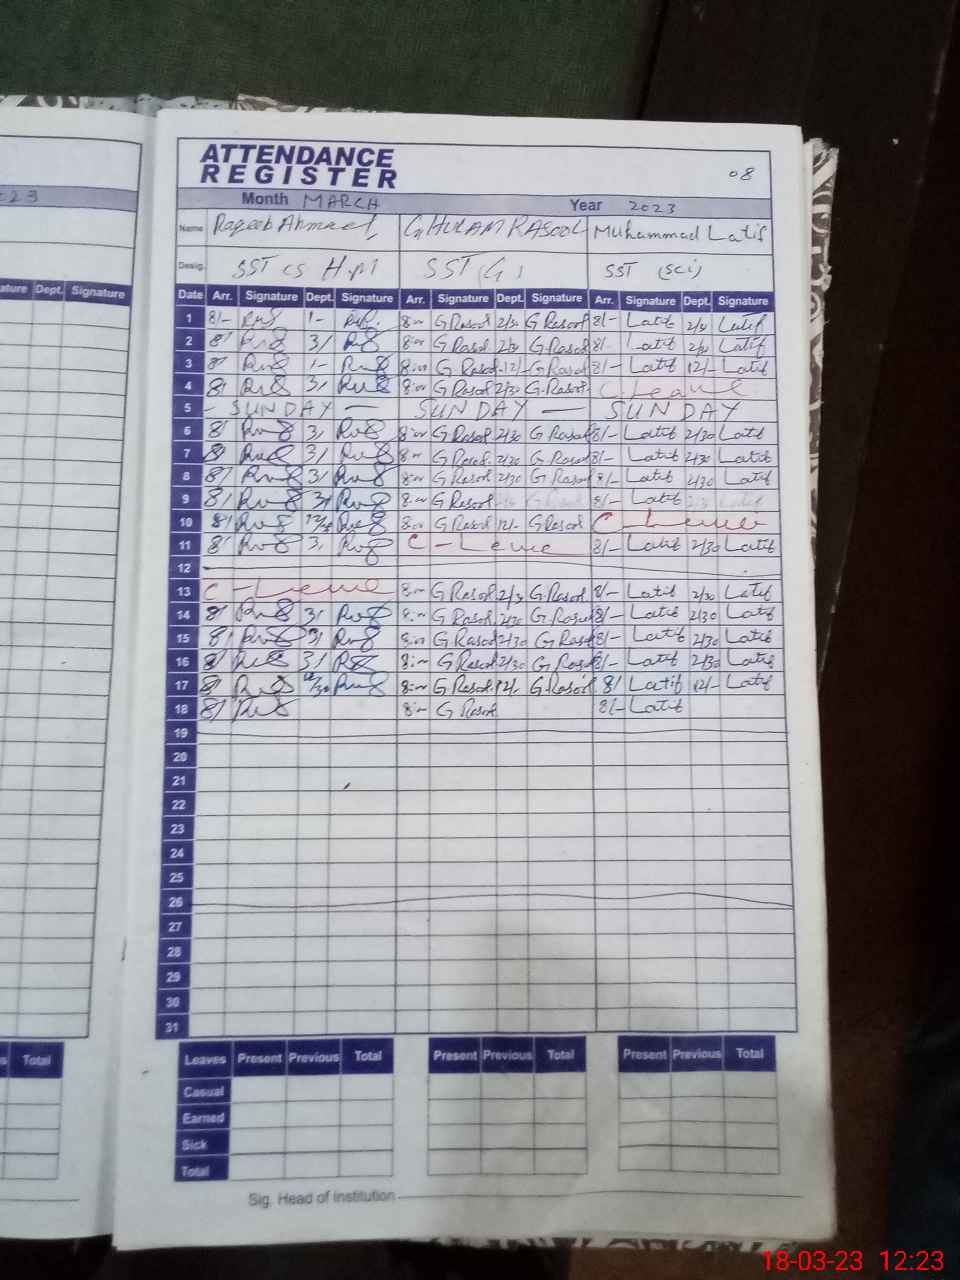 23
ature Dept. Signature
ATTENDANCE
REGISTER
08
Month MARCH Year 2023
Name Raqeeb Ahmed, GHULAM RASOOL Muhammad Latif
Desig. SST CS H.M SST (G) SST (Sci)
Date Arr. Signature Dept. Signature Arr. Signature Dept. Signature Arr. Signature Dept. Signature
1 8/- 1- G Rasool 2/30 G Rasool 8/- Latif 2/30 Latif
2 8/ 3/ G Rasool 2/30 G Rasool 8/- Latif 2/30 Latif
3 8/ 1- G Rasool 12/- G Rasool 8/- Latif 12/- Latif
4 8/ 3/ G Rasool 2/30 G Rasool C Leave
5 - SUNDAY - SUNDAY - SUNDAY
6 8/ 3/ G Rasool 2/30 G Rasool 8/- Latif 2/30 Latif
7 8/ 3/ G Rasool 2/30 G Rasool 8/- Latif 2/30 Latif
8 8/ 3/ G Rasool 2/30 G Rasool 8/- Latif 2/30 Latif
9 8/ 3/ G Rasool 8/- Latif
10 8/ 12/30 G Rasool 12/- G Rasool C - Leave
11 8/ 3/ C - Leave 8/- Latif 2/30 Latif
12
13 C - Leave G Rasool 2/30 G Rasool 8/- Latif 2/30 Latif
14 8/ 3/ G Rasool 2/30 G Rasool 8/- Latif 2/30 Latif
15 8/ 3/ G Rasool 2/30 G Rasool 8/- Latif 2/30 Latif
16 8/ 3/ G Rasool 2/30 G Rasool 8/- Latif 2/30 Latif
17 8/ 12/30 G Rasool 12/- G Rasool 8/ Latif 12/- Latif
18 8/ G Rasool 8/- Latif
19
20
21
22
23
24
25
26
27
28
29
30
31
s Total
Leaves Present Previous Total Present Previous Total Present Previous Total
Casual
Earned
Sick
Total
Sig. Head of Institution
18-03-23 12:23